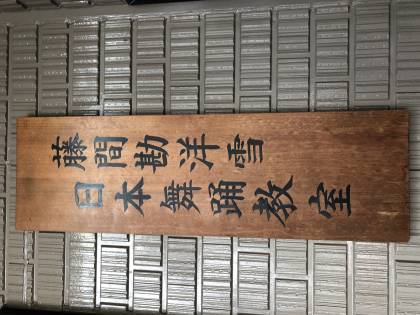 藤間勘洋雪
日本舞踊教室